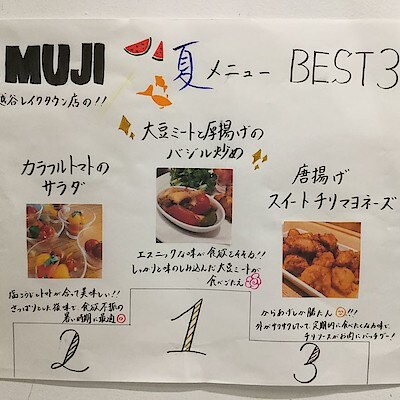 MUJI 夏メニュー BEST3
越谷レイクタウン店の!!
大豆ミートと厚揚げの
バジル炒め
カラフルトマトの
サラダ
唐揚げ
スイートチリマヨネーズ
エスニックな味が食欲をそそる!!
しっかりと味のしみ込んだ大豆ミートが
食べごたえ
塩こうじとトマトが合って美味しい!!
さっぱりとした酸味で、食欲不振の
暑い時期に最適
からあげしか勝たん!!!
外がサクサクしていて、定期的に食べたくなる味で、
チリソースがお肉にバッチグー!
2
1
3